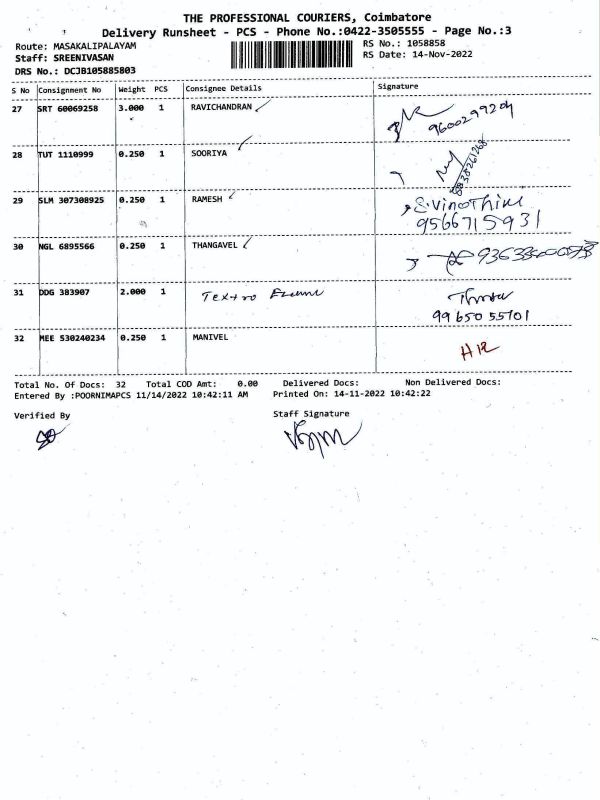 THE PROFESSIONAL COURIERS, Coimbatore
Delivery Runsheet - PCS - Phone No.:0422-3505555 - Page No.:3
Route: MASAKALIPALAYAM
Staff: SREENIVASAN
DRS No.: DCJB105885803
RS No.: 1058858
RS Date: 14-Nov-2022
S No Consignment No Weight PCS Consignee Details Signature
27 SRT 60069258 3.000 1 RAVICHANDRAN 9600299204
28 TUT 1110999 0.250 1 SOORIYA
29 SLM 307308925 0.250 1 RAMESH S.Vinothini
9566715931
30 NGL 6895566 0.250 1 THANGAVEL
31 DDG 383907 2.000 1 Textro
99650 55701
32 MEE 530240234 0.250 1 MANIVEL
Total No. Of Docs: 32 Total COD Amt: 0.00 Delivered Docs: Non Delivered Docs:
Entered By :POORNIMAPCS 11/14/2022 10:42:11 AM Printed On: 14-11-2022 10:42:22
Verified By Staff Signature